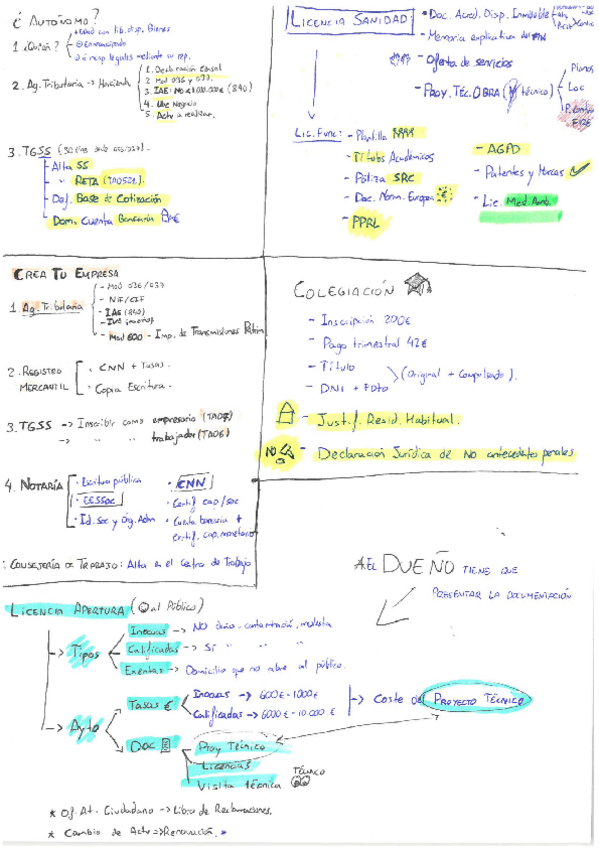 ¿ Autónomo?
1 ¿Quién?
Edad con lib. disp. Bienes
Emancipado
legales mediante su rep.
2. Ag. Tributaria → Hacienda
1. Declaración Censal
2. Mod 036 y 037.
3. IAE: No < 1.000.000€ (840)
4. Negocio
5. Actv a realizar.
3. TGSS (30 días
- Alta SS
- " RETA (TA0521)
- Def. Base de Cotización
- Dom. Cuenta Bancaria
Licencia Sanidad:
• Doc. Acred. Disp. Inmueble
• Memoria explicativa del
• Oferta de servicios
• Proy. Téc. OBRA ( técnico)
Planos
Loc
P. Contra
Lic. Func:
- Plantilla
- Títulos Académicos
- Póliza SRC
- Doc. Norm. Europea
- PPRL
- AGPD
- Patentes y Marcas
- Lic. Med. Amb.
Crea Tu Empresa
1. Ag. Tributaria
- Mod 036/037
- NIF/CIF
- IAE (840)
- Mod 600 - Imp. de Transmisiones Patrim
2. Registro Mercantil
• CNN + Tasas.
• Copia Escritura.
3. TGSS → Inscribir como empresario (TA07)
→ " " trabajador (TA06)
4. Notaría
• Escritura pública
• EESSoc
• Id. Soc y Org. Adm
• CNN
• Certif cap/soc
• Cuenta bancaria +
certif. cap. monetario
: Consejería de Trabajo: Alta en el Centro de Trabajo
Colegiación
- Inscripción 200€
- Pago trimestral 42€
- Título
- DNI + Foto
(Original + Compulsado).
- Justf. Resid. Habitual.
NO - Declaración Jurídica de No antecedentes penales
*EL DUEÑO TIENE QUE
PRESENTAR LA DOCUMENTACIÓN
Licencia Apertura ( al Público)
→ Tipos
Inocuas → NO daño, contaminació, molestia
Calificadas → Sí " " "
Exentas → Domicilio que no abre al público.
→ Ayto
Tasas €
Inocuas → 600€ - 1000€
Calificadas → 6000€ - 10.000€
→ Coste del PROYECTO TÉCNICO
Doc
Proy Técnico
Licencias
Visita Técnica
TÉCNICO
* Of. At. Ciudadano → Libro de Reclamaciones.
* Cambio de Actv ⇒ Renovación. *